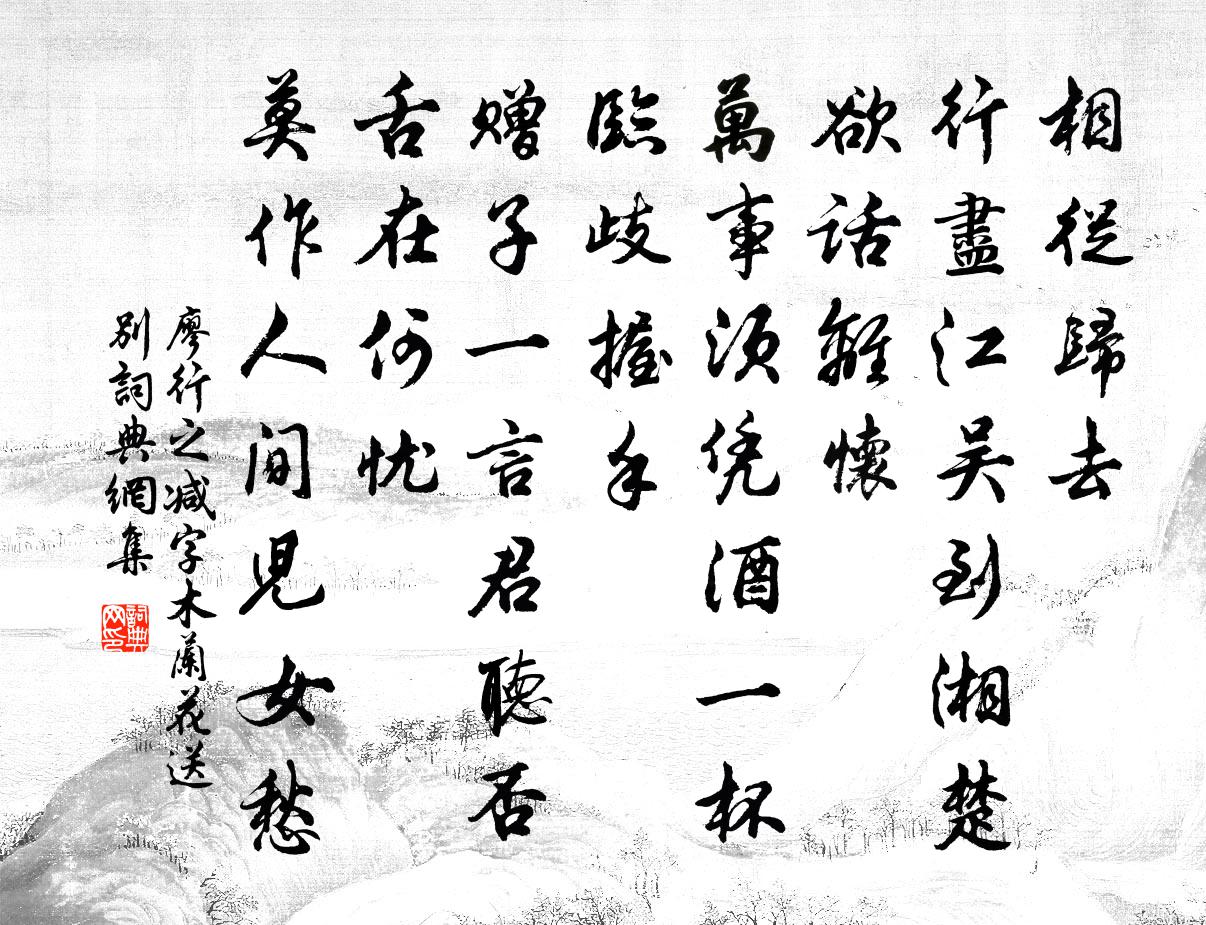 相從歸去
行盡江吴到湘楚
欲話離懷
萬事須凭酒一杯
臨歧握手
贈子一言君聽否
舌在何忧
莫作人间兒女愁
廖行之减字木蘭花送
别詞典網集
詞典网印